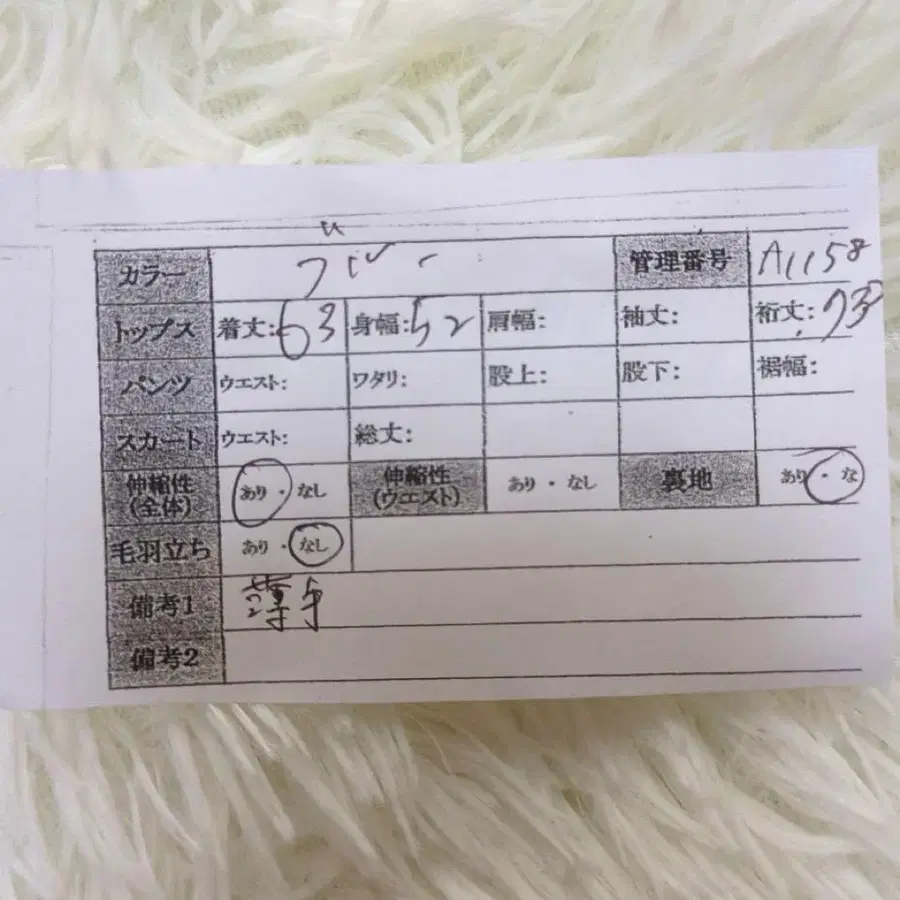 カラー 管理番号 A1158
トップス 着丈:63 身幅:52 肩幅: 袖丈: 裄丈:73
パンツ ウエスト: ワタリ: 股上: 股下: 裾幅:
スカート ウエスト: 総丈:
伸縮性 あり・なし 伸縮性 あり・なし 裏地 あり・な
(全体) (ウエスト)
毛羽立ち あり・なし
備考1 薄手
備考2